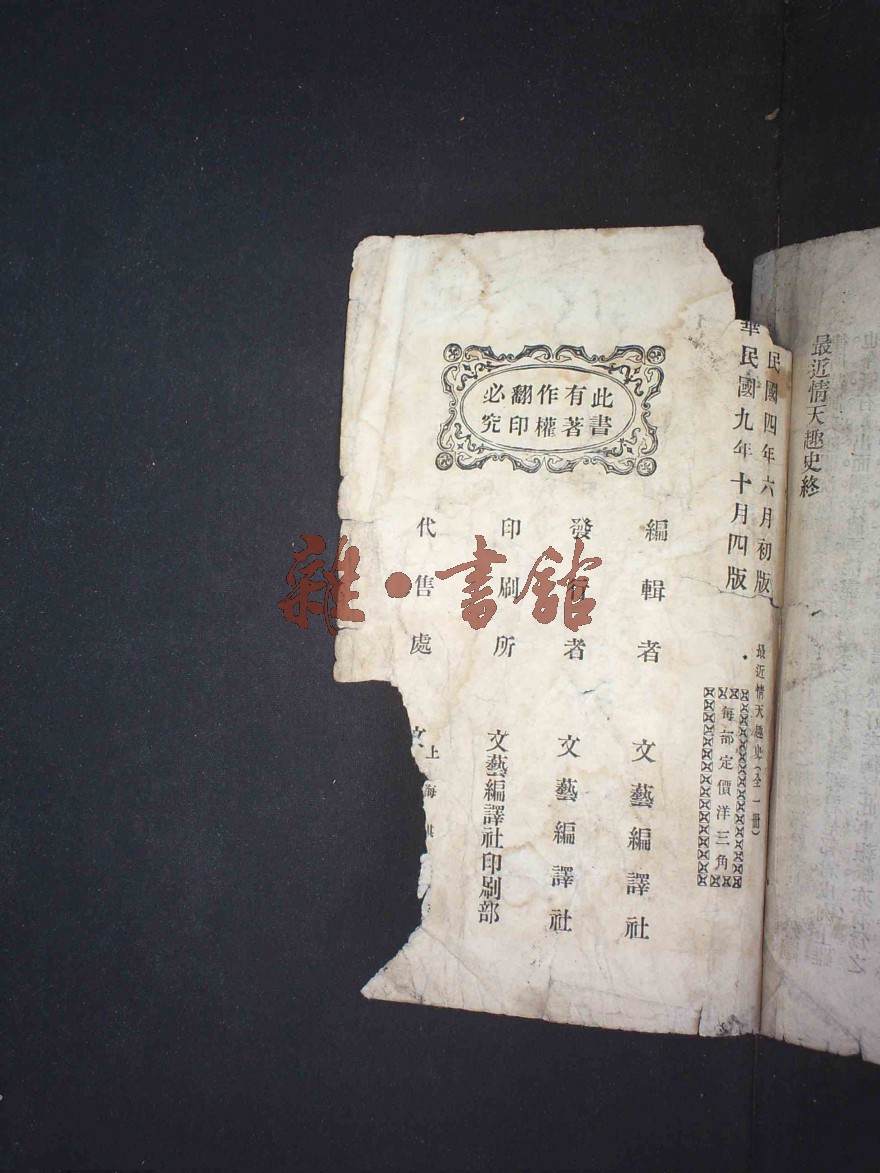 最近情天趣史終
民國四年六月初版
華民國九年十月四版
最近情天趣史(全一冊)
每部定價洋三角
此書
有著
作權
翻印
必究
編輯者 文藝編譯社
發行者 文藝編譯社
印刷所 文藝編譯社印刷部
代售處
上海
文
雜·書館